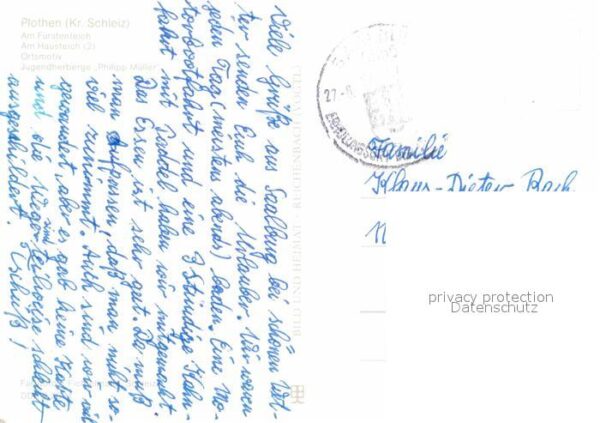 Plothen (Kr. Schleiz)
Am Fürstenteich
Am Hausteich (2)
Ortsmotiv
Jugendherberge „Philipp Müller“
Viele Grüße aus Saalburg bei schönem Wet-
ter senden Euch die Urlauber. Wir waren
jeden Tag (meistens abends) baden. Eine Mo-
torbootfahrt und eine 3stündige Kahn-
fahrt mit Paddel haben wir mitgemacht
Das Essen ist sehr gut. Da muß
man aufpassen, daß man nicht so-
viel zunimmt. Auch sind wir viel
gewandert, aber es gab keine Karte
und die Wege sind teilweise schlecht
ausgeschildert. Tschüß!
BILD UND HEIMAT · REICHENBACH (VOGTL)
27.-8.
Familie
Klaus-Dieter
privacy protection
Datenschutz